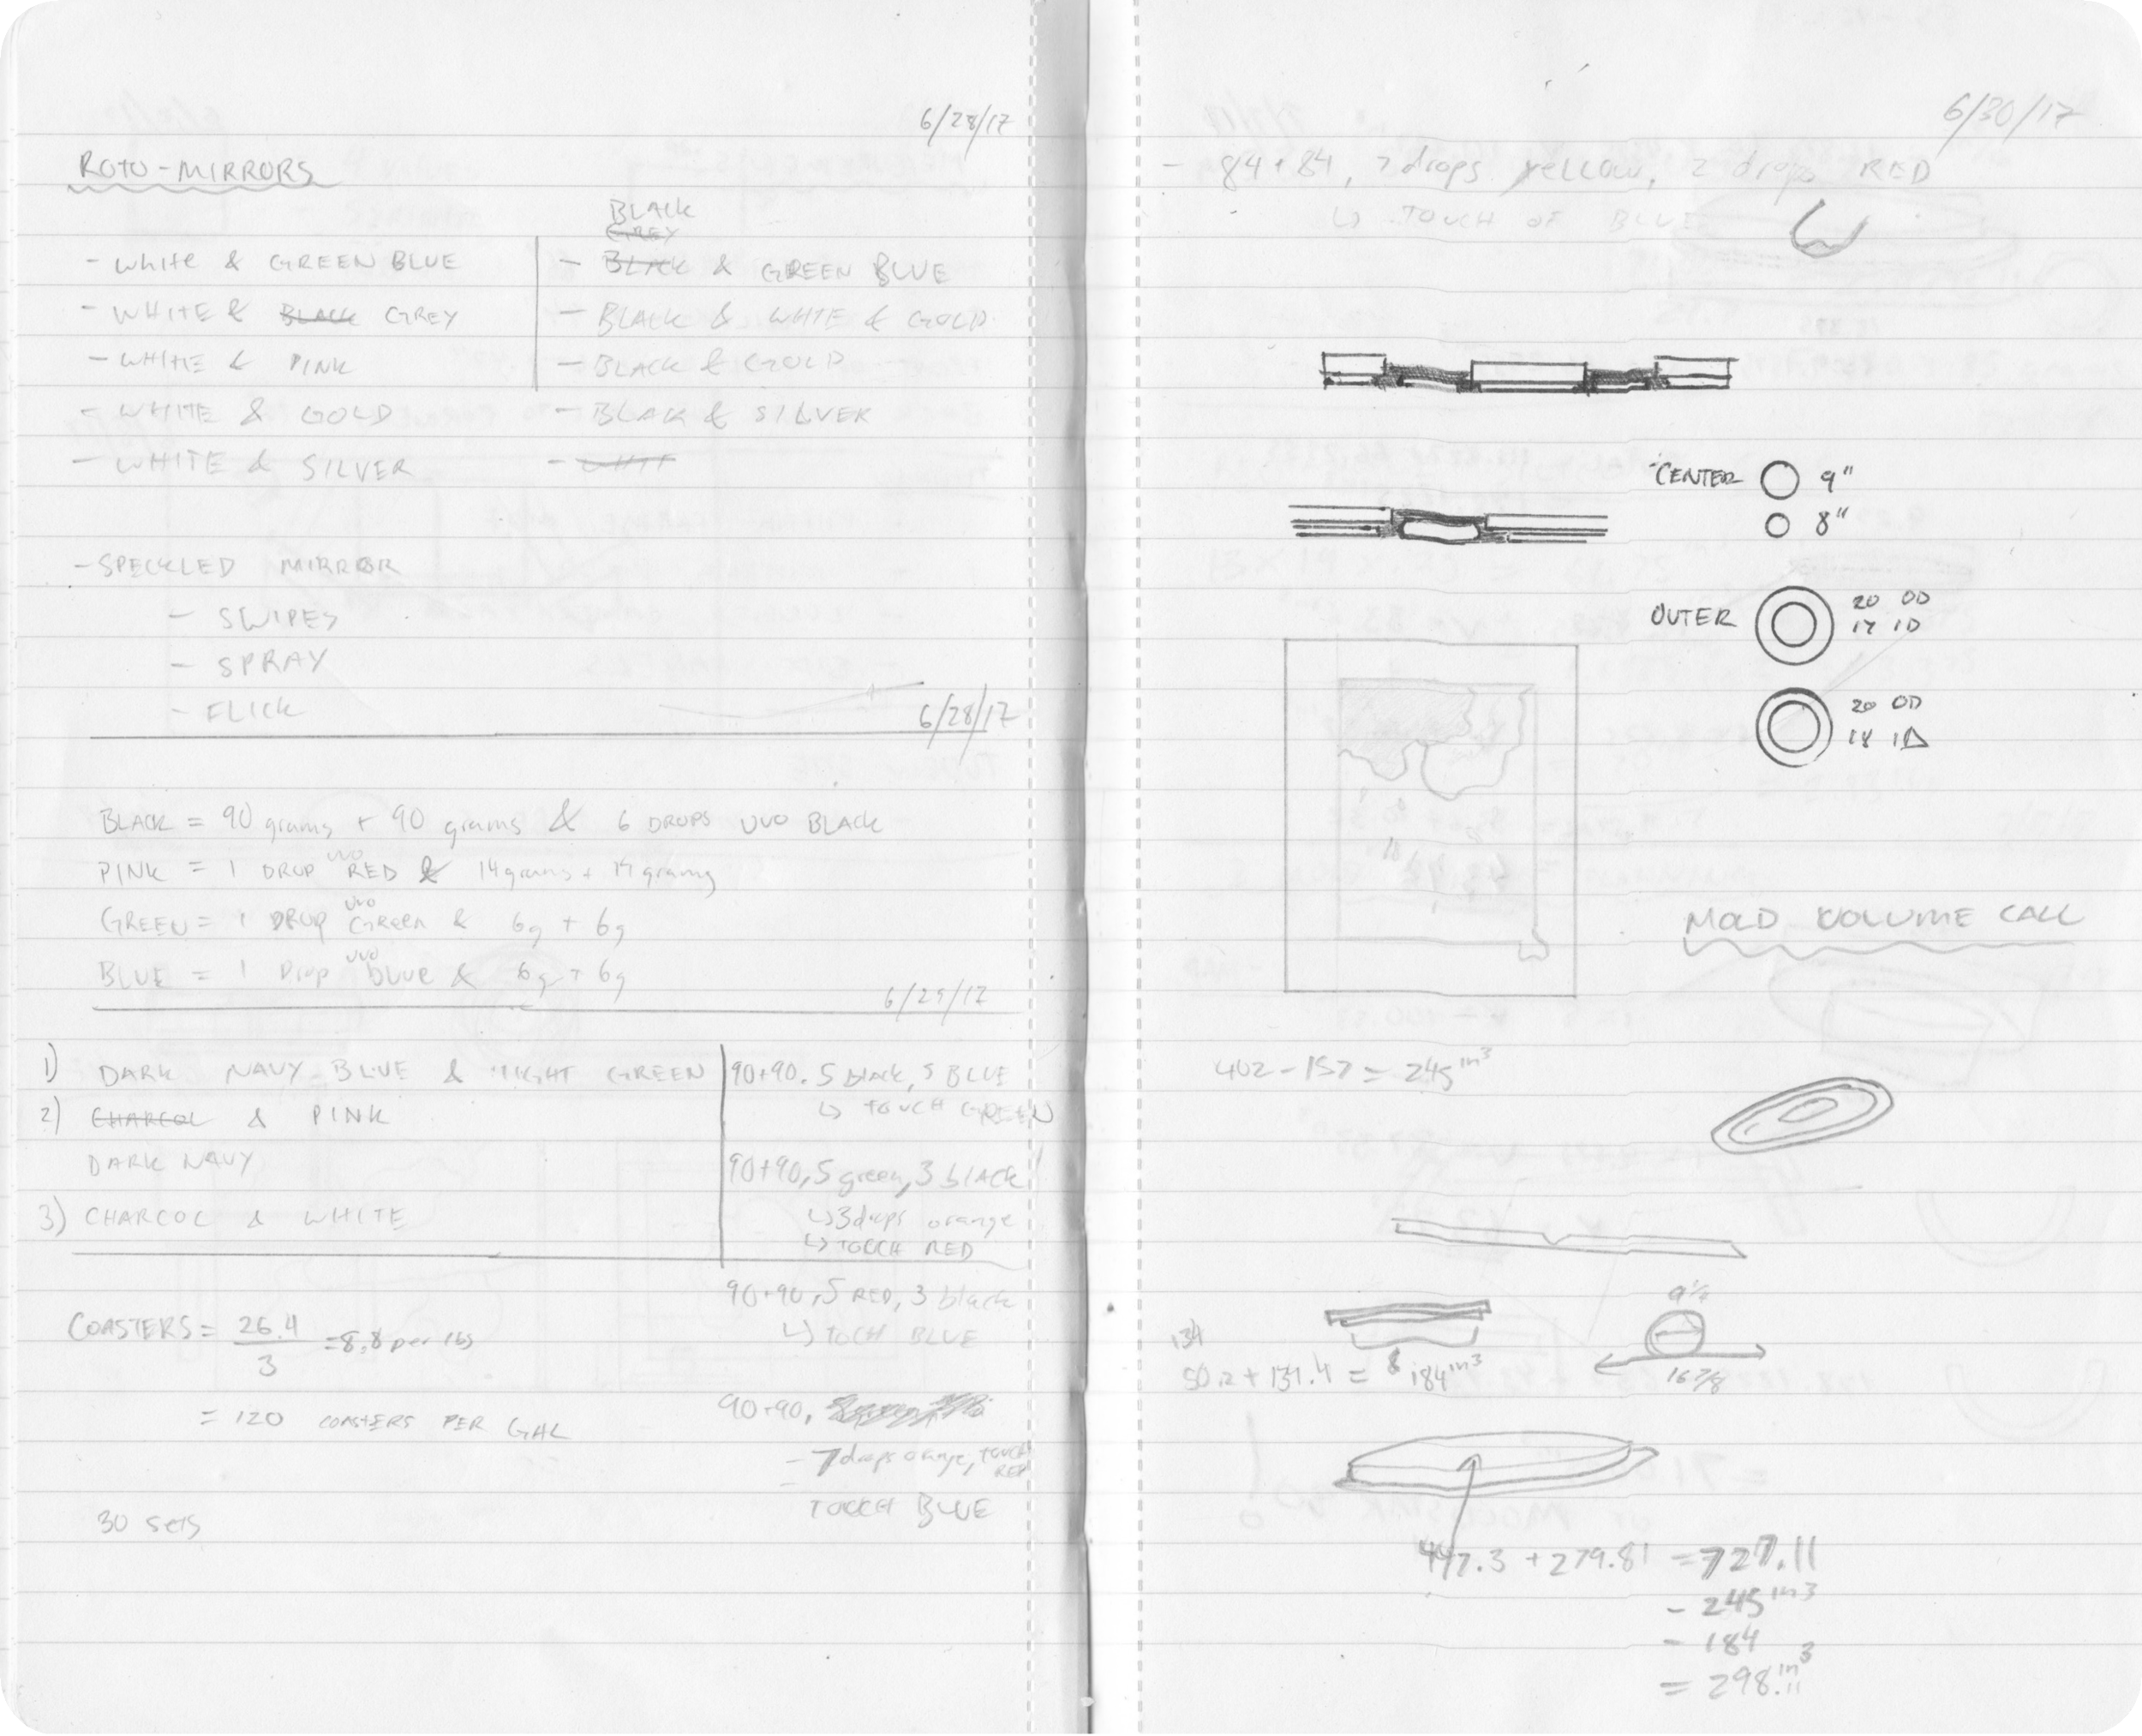 6/28/17
ROTO-MIRRORS
- White & GREEN BLUE
- WHITE & BLACK GREY
- WHITE & PINK
- WHITE & GOLD
- WHITE & SILVER
BLACK
GREY
- BLACK & GREEN BLUE
- BLACK & WHITE & GOLD
- BLACK & GOLD
- BLAK & SILVER
- WHIT
- SPECKLED MIRROR
- SWIPES
- SPRAY
- FLICK
6/28/17
BLACK = 90 grams + 90 grams & 6 DROPS UVO BLACK
PINK = 1 DROP UVO RED & 14 grams + 14 grams
GREEN = 1 DROP UVO Green & 6g + 6g
BLUE = 1 Drop UVO blue & 6g + 6g
6/29/17
1) DARK NAVY BLUE & LIGHT GREEN
2) CHARCOL & PINK
DARK NAVY
3) CHARCOL & WHITE
90+90, 5 black, 5 BLUE
↳ TOUCH GREEN
90+90, 5 green, 3 black
↳ 3 drops orange
↳ TOUCH RED
90+90, 5 RED, 3 black
↳ TOCH BLUE
90+90,
- 7 drops orange, TOUCH RED
TOUCH BLUE
COASTERS = 26.4 / 3 = 8.8 per lbs
= 120 COASTERS PER GAL
30 sets
6/30/17
- 84+84, 7 drops yellow, 2 drops RED
↳ TOUCH OF BLUE
CENTER 9"
8"
OUTER 20 OD
17 ID
20 OD
18 ID
MOLD VOLUME CALC
402 - 157 = 245 in³
9 1/4
16 7/8
134
50.2 + 134.4 = 184 in³
447.3 + 279.81 = 727.11
- 245 in³
- 184
= 298.11 in³